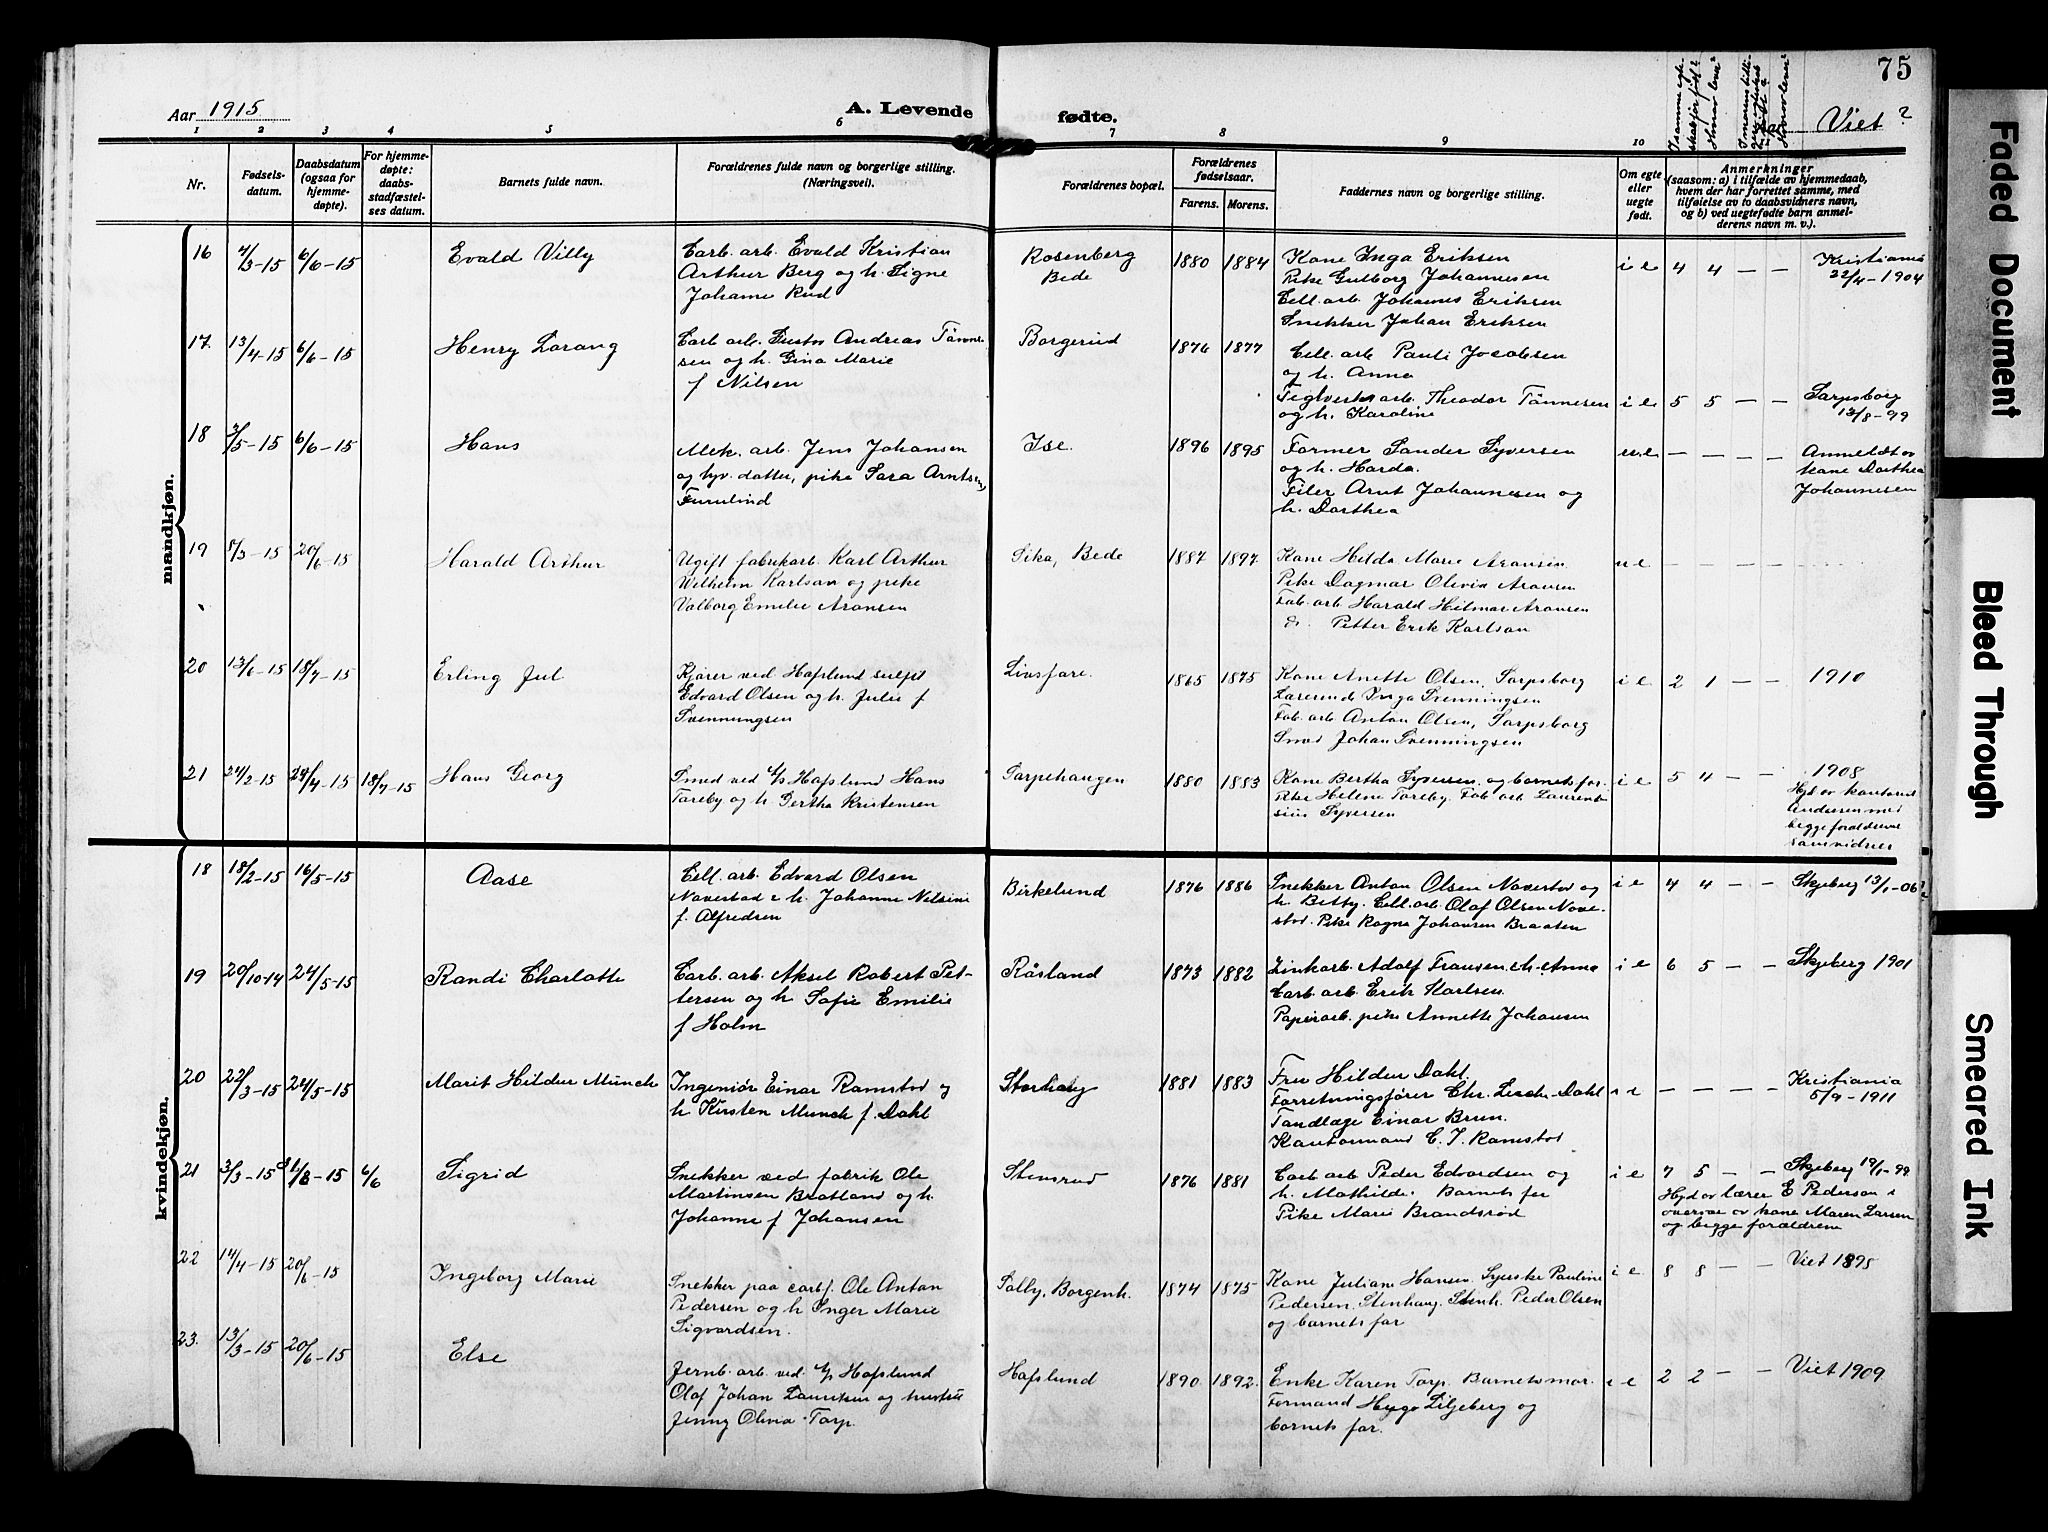 75
Aar 1915
A. Levende fødte.
Viet?
1 2 3 4 5 6 7 8 9 10
Nr.
Fødsels-
datum.
Daabsdatum
(ogsaa for
hjemme-
døpte).
For hjemme-
døpte:
daabs-
stadfæstel-
ses datum.
Barnets fulde navn.
Forældrenes fulde navn og borgerlige stilling.
(Næringsvei).
Forældrenes bopæl.
Forældrenes
fødselsaar.
Farens. Morens.
Faddernes navn og borgerlige stilling.
Om egte
eller
uegte
født.
Anmerkninger
(saasom: a) i tilfælde av hjemmedaab,
hvem der har forrettet samme, med
tilføielse av to daabsvidners navn,
og b) ved uegtefødte barn anmel-
derens navn m. v.).
mandkjøn.
16 4/3-15 6/6-15 Evald Villy
Carb. arb. Evald Kristian
Arthur Berg og h. Signe
Johanne Rud
Rosenberg
Bede
1880 1884
Kone Inga Eriksen
Pike Gulborg Johannesen
Cell. arb. Johannes Eriksen
Snekker Johan Eriksen
i e 4 4 — —
Kristiania
22/4-1904
17. 13/4-15 6/6-15 Henry Lorang
Carb. arb. Gustav Andreas Tønne-
sen og h. Gina Marie
f Nilsen
Borgerud
1876 1877
Cell. arb. Pauli Jocobsen
og h. Anna
Teglverks arb. Theodor Tønnesen
og h. Karoline
i e 5 5 — —
Sarpsborg
13/8-99
18 3/5-15 6/6-15 Hans
Mek. arb. Jens Johansen
og hjv. datter, pike Sara Arntsen,
Furulund
Ise.
1896 1895
Former Sander Syversen
og h. Harda.
Filer Arnt Johannesen og
h. Dorthea
u e — — — —
Anmeldt av
kone Dorthea
Johannesen
19 5/3-15 20/6-15 Harald Arthur
Ugift fabrikarb. Karl Arthur
Wilhelm Karlson og pike
Valborg Emelie Aronsen
Sika, Bede
1887 1897
Kone Hilda Marie Aronsen.
Pike Dagmar Olivia Aronsen
Fab. arb Harald Hilmar Aronsen
Petter Erik Karlson
u e — — — —
20 13/6-15 18/7-15 Erling Jul
Kjører ved Hafslund
Edvard Olsen og h. Julie f
Svenningsen
1865 1875
Kone Anette Olsen, Sarpsborg
Lærerinde Inga Svenningsen
Fab. arb Anton Olsen, Sarpsborg
Smed Johan Svenningsen
i e 2 1 — —
1910
21 24/2-15 24/4-15 18/7-15 Hans Georg
Smed ved A/S Hafslund Hans
Toreby og h. Gertha Kristensen
Sarpehaugen
1880 1883
Kone Bertha Syversen og barnets far.
Pike Helene Toreby. Fab. arb Lauren-
sius Syversen
i e 5 4 — —
1908
Hjd av kontorist
Andersen med
begge forældrene
som vidner
kvindekjøn.
18 18/2-15 16/5-15 Aase
Cell. arb. Edvard Olsen
Navestad & h. Johanne Nelsine
f. Alfredsen
Birkelund
1876 1886
Snekker Anton Olsen Navestad og
h. Betty. Cell. arb. Olaf Olsen Nave-
stad. Pike Ragna Johansen Braaten
i e 4 4 — —
Skjeberg 13/1-06
19 20/10-14 24/5-15 Randi Charlotte
Carb. arb. Aksel Robert Pet-
tersen og h Sofie Emilie
f Holm
Råsland
1873 1882
Zinkarb. Adolf Fransen, h. Anna
Carb. arb. Erik Karlsen.
Papirarb. pike Annette Johansen
i e 6 5 — —
Skjeberg 1901
20 22/3-15 24/5-15 Marit Hildur Münch
Ingeniør Einar Ramstad og
h Kirsten Munch f. Dahl
Storhaug
1881 1883
Fru Hildur Dahl.
Forretningsfører Chr. Lesche-Dahl
Tandlæge Einar Brun.
Kontormand C. I. Ramstad
i e — — — —
Kristiania
5/9-1911
21 3/3-15 6/6 Sigrid
Snekker ved fabrik Ole
Martinsen Bratland og h.
Johanne f Johansen
Stensrud
1876 1881
Carb arb Peder Edvardsen og
h. Mathilde. Barnets far
Pike Marie Brandsrød
i e 7 5 — —
Skjeberg 19/1-99
Hjd av lærer E Pedersen i
overvær av kone Maren Larsen
og begge forældrene
22 14/4-15 20/6-15 Ingeborg Marie
Snekker paa carbf. Ole Anton
Pedersen og h Inger Marie
Sigvardsen.
Solby, Borgenh.
1874 1875
Kone Juliane Hansen. Syerske Pauline
Pedersen, Stenhaug. Stenh. Peder Olsen
og barnets far
i e 8 8 — —
Viet 1895
23. 13/3-15 20/6-15 Else
Jernb. arb. ved A/S Hafslund
Olaf Johan Lauritsen og hustru
Jenny Olivia Torp.
Hafslund
1890 1892
Enke Karen Torp. Barnets mor.
Formand Hygo Liljeberg og
barnets far.
i e 2 2 — —
Viet 1909
Faded Document
Bleed Through
Smeared Ink